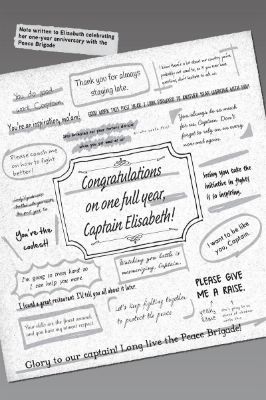 Note written to Elisabeth celebrating
her one-year anniversary with the
Peace Brigade
You do good
work, Captain.
Thank you for always
staying late.
You're an inspiration, ma'am!
GOOD WORK THIS PAST YEAR. I LOOK FORWARD TO ANOTHER YEAR WORKING WITH YOU!
Please coach me
on how to fight
better!
You always do so much
for us, Captain. Don't
forget to rely on us every
now and again.
Congratulations
on one full year,
Captain Elisabeth!
Seeing you take the
initiative in fights
is so inspiring.
You're the
coolest!
I want to be like
you, Captain.
I'm going to train hard so
I can help you more.
Watching you battle is
mesmerizing, Captain.
I found a great restaurant. I'll tell you all about it later.
PLEASE GIVE
ME A RAISE.
Let's keep fighting together
to protect the peace
Your skills are the finest around,
and you have my utmost respect.
Glory to our captain! Long live the Peace Brigade!